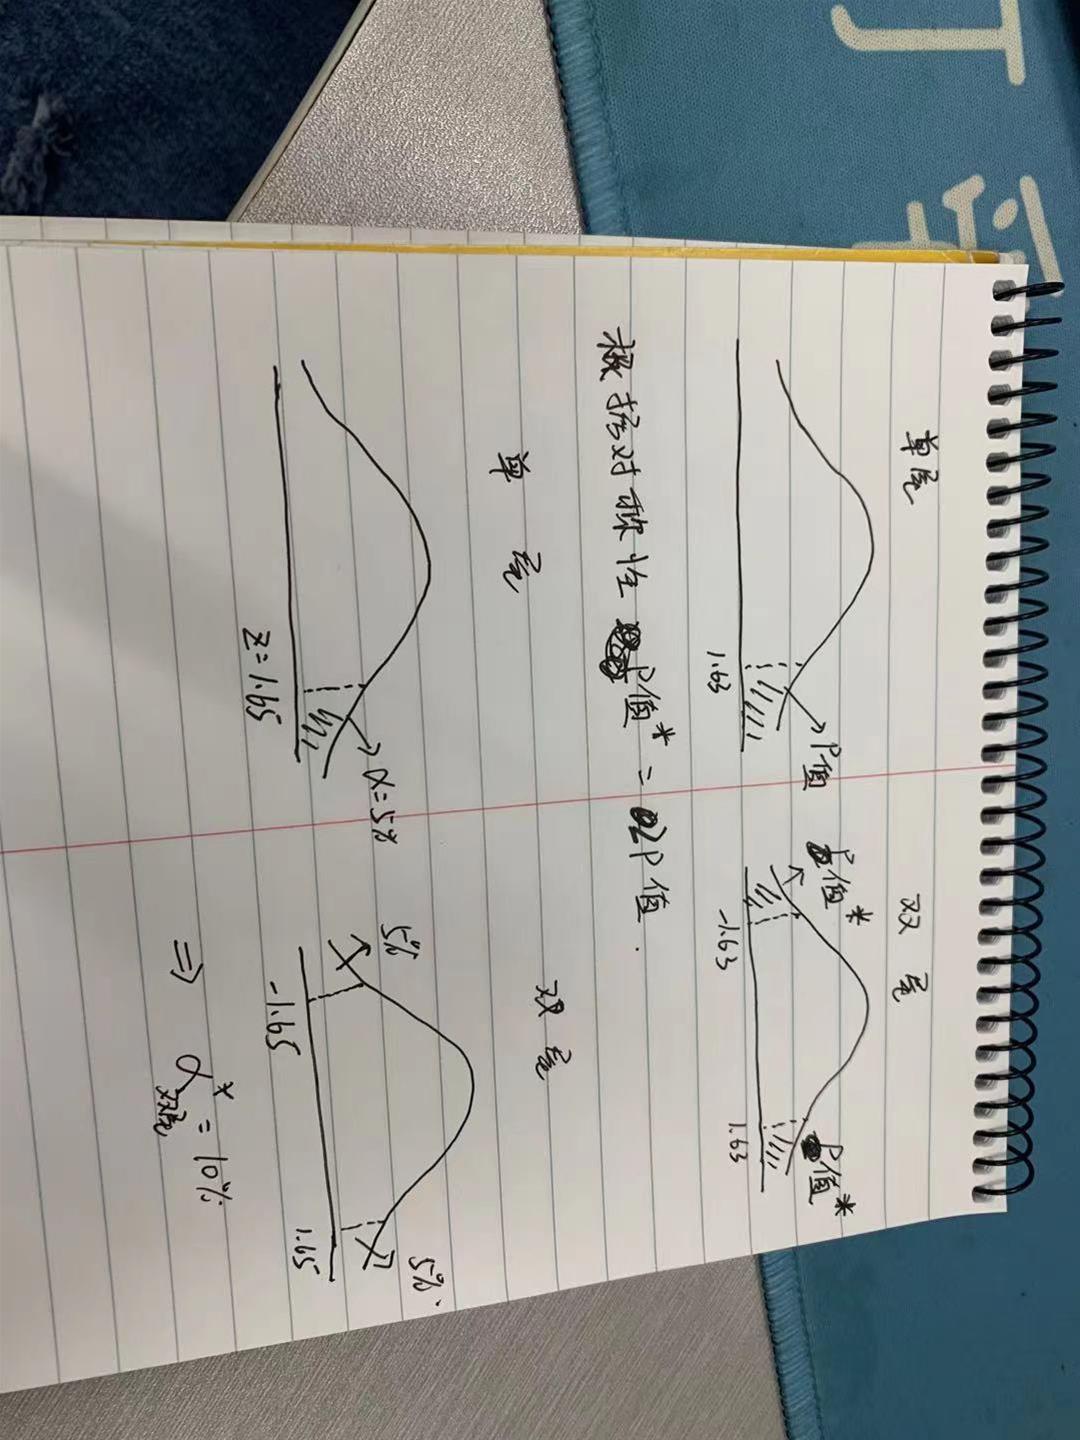 单尾
双尾
P值
P值*
P值*
1.63
-1.63
1.63
根据对称性 P值* = 2P值.
单尾
双尾
α=5%
5%
5%.
Z=1.65
-1.65
1.65
⇒ α*双尾 = 10%